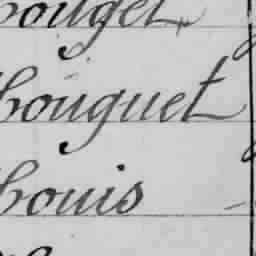 bouget
bouguet
bouis